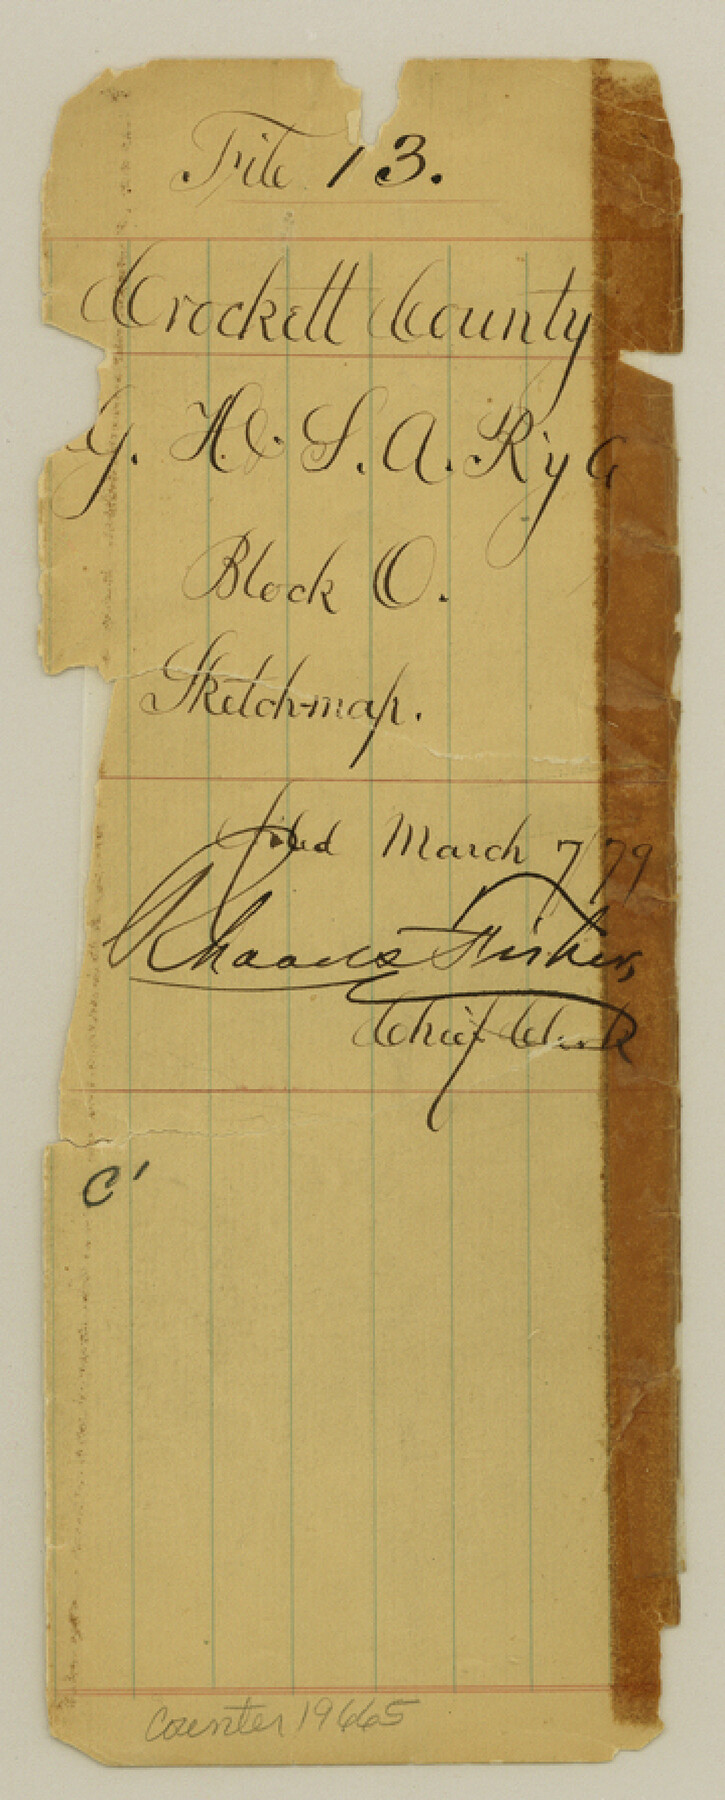 File 13.
Crockett County
G. H. & S. A. Ry C
Block O.
Sketch-map.
Filed March 7/79
Rhoads Fisher,
Chief Clerk
C'
Counter 19665